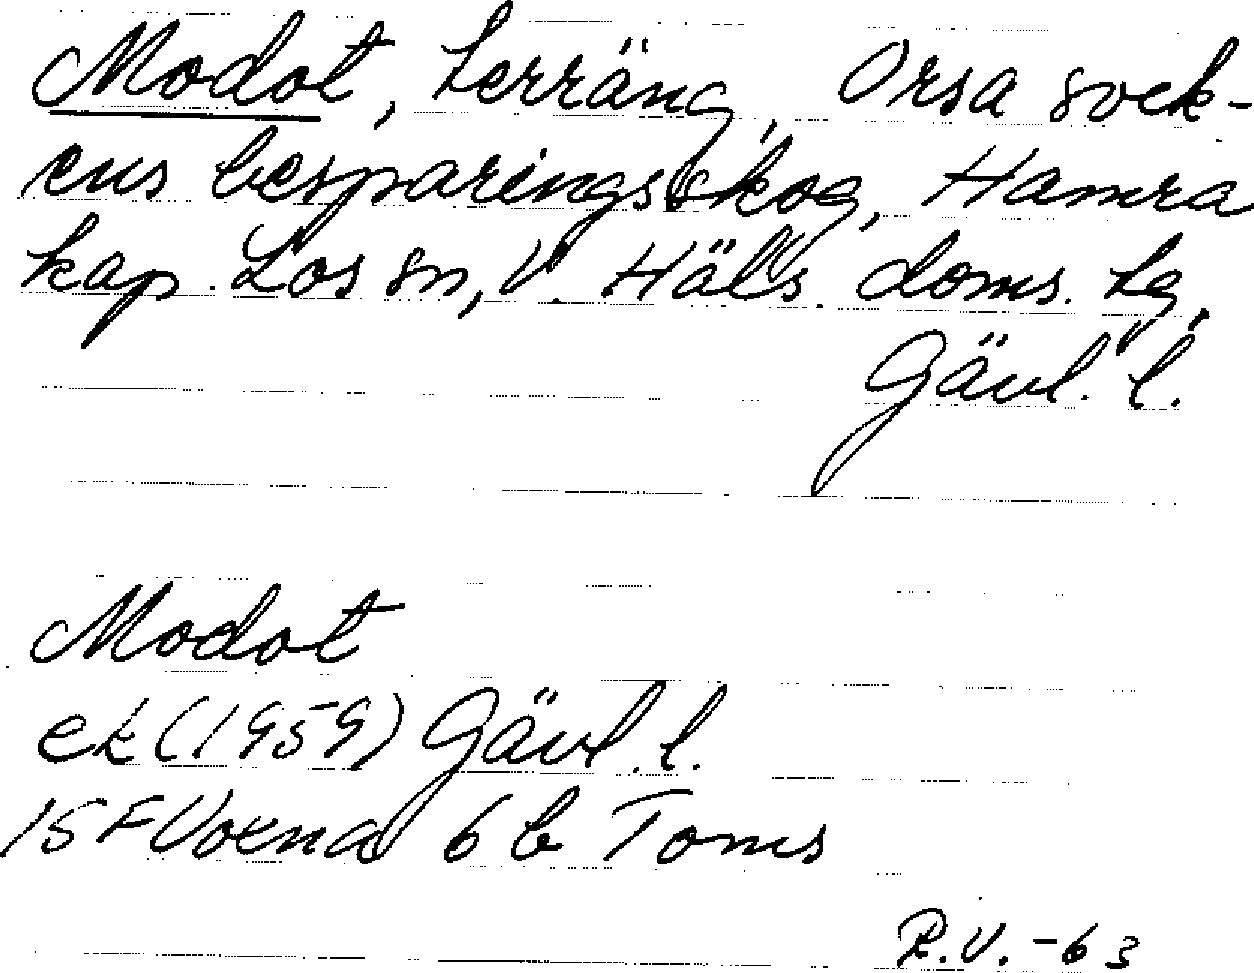 Modot, terräng, Orsa sock-
ens besparingsskog, Hamra
kap. Los sn, V. Häls. doms. lg,
Gävl. l.
Modot
ek (1959) Gävl. l.
15F Voxna 6 b Toms
R.V. -63